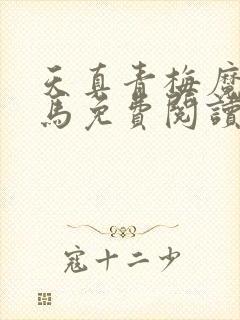 天真青梅魔
馬免費閱讀
寇十二少